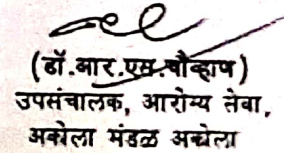 (डॉ.आर.एस.चौव्हाण)
उपसंचालक, आरोग्य सेवा,
अकोला मंडळ अकोला